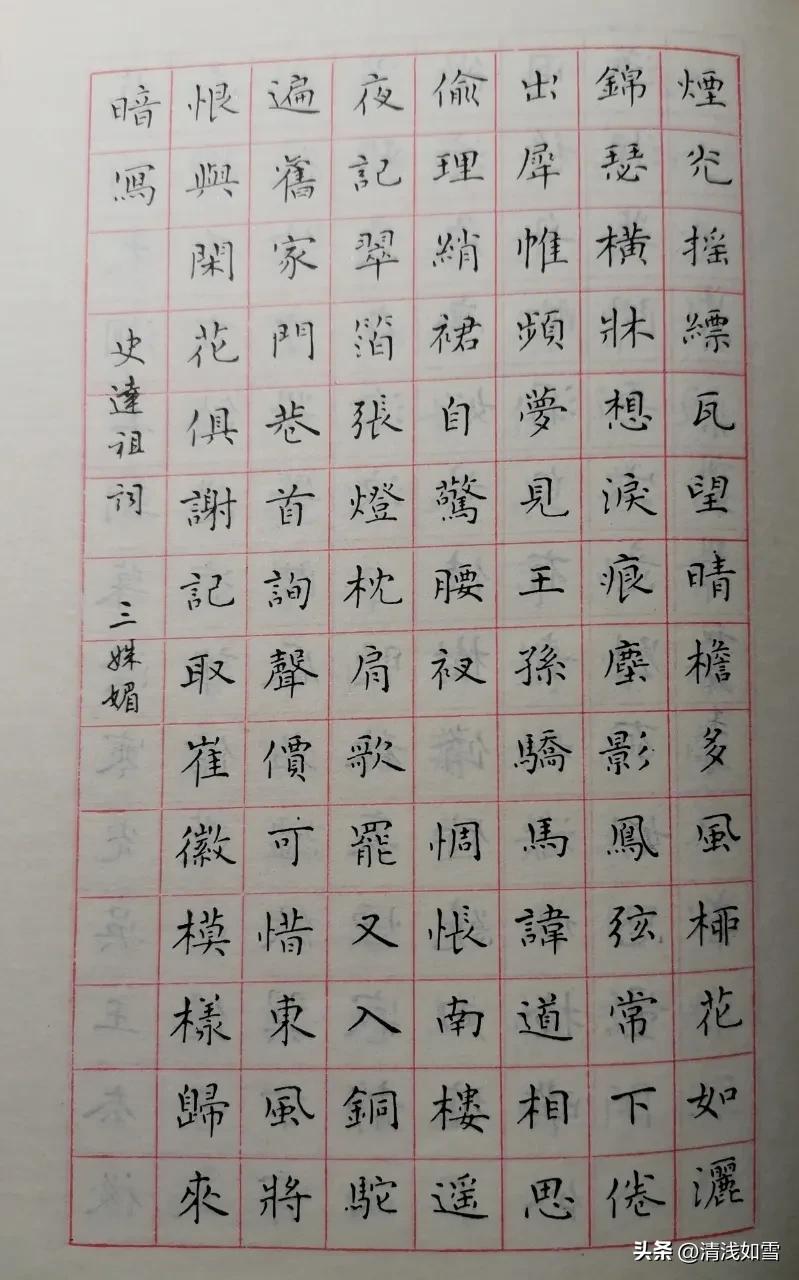 煙光摇縹瓦望晴檐多風柳花如灑
錦瑟橫牀想淚痕塵影鳳弦常下倦
出犀帷頻夢見王孫驕馬諱道相思
偷理綃裙自驚腰衩 惆悵南樓遥
夜記翠箔張燈枕肩歌罷又入銅駝
遍舊家門巷首詢聲價可惜東風將
恨與閑花俱謝記取崔徽模樣歸來
暗寫 史達祖詞 三姝媚
头条 @清浅如雪